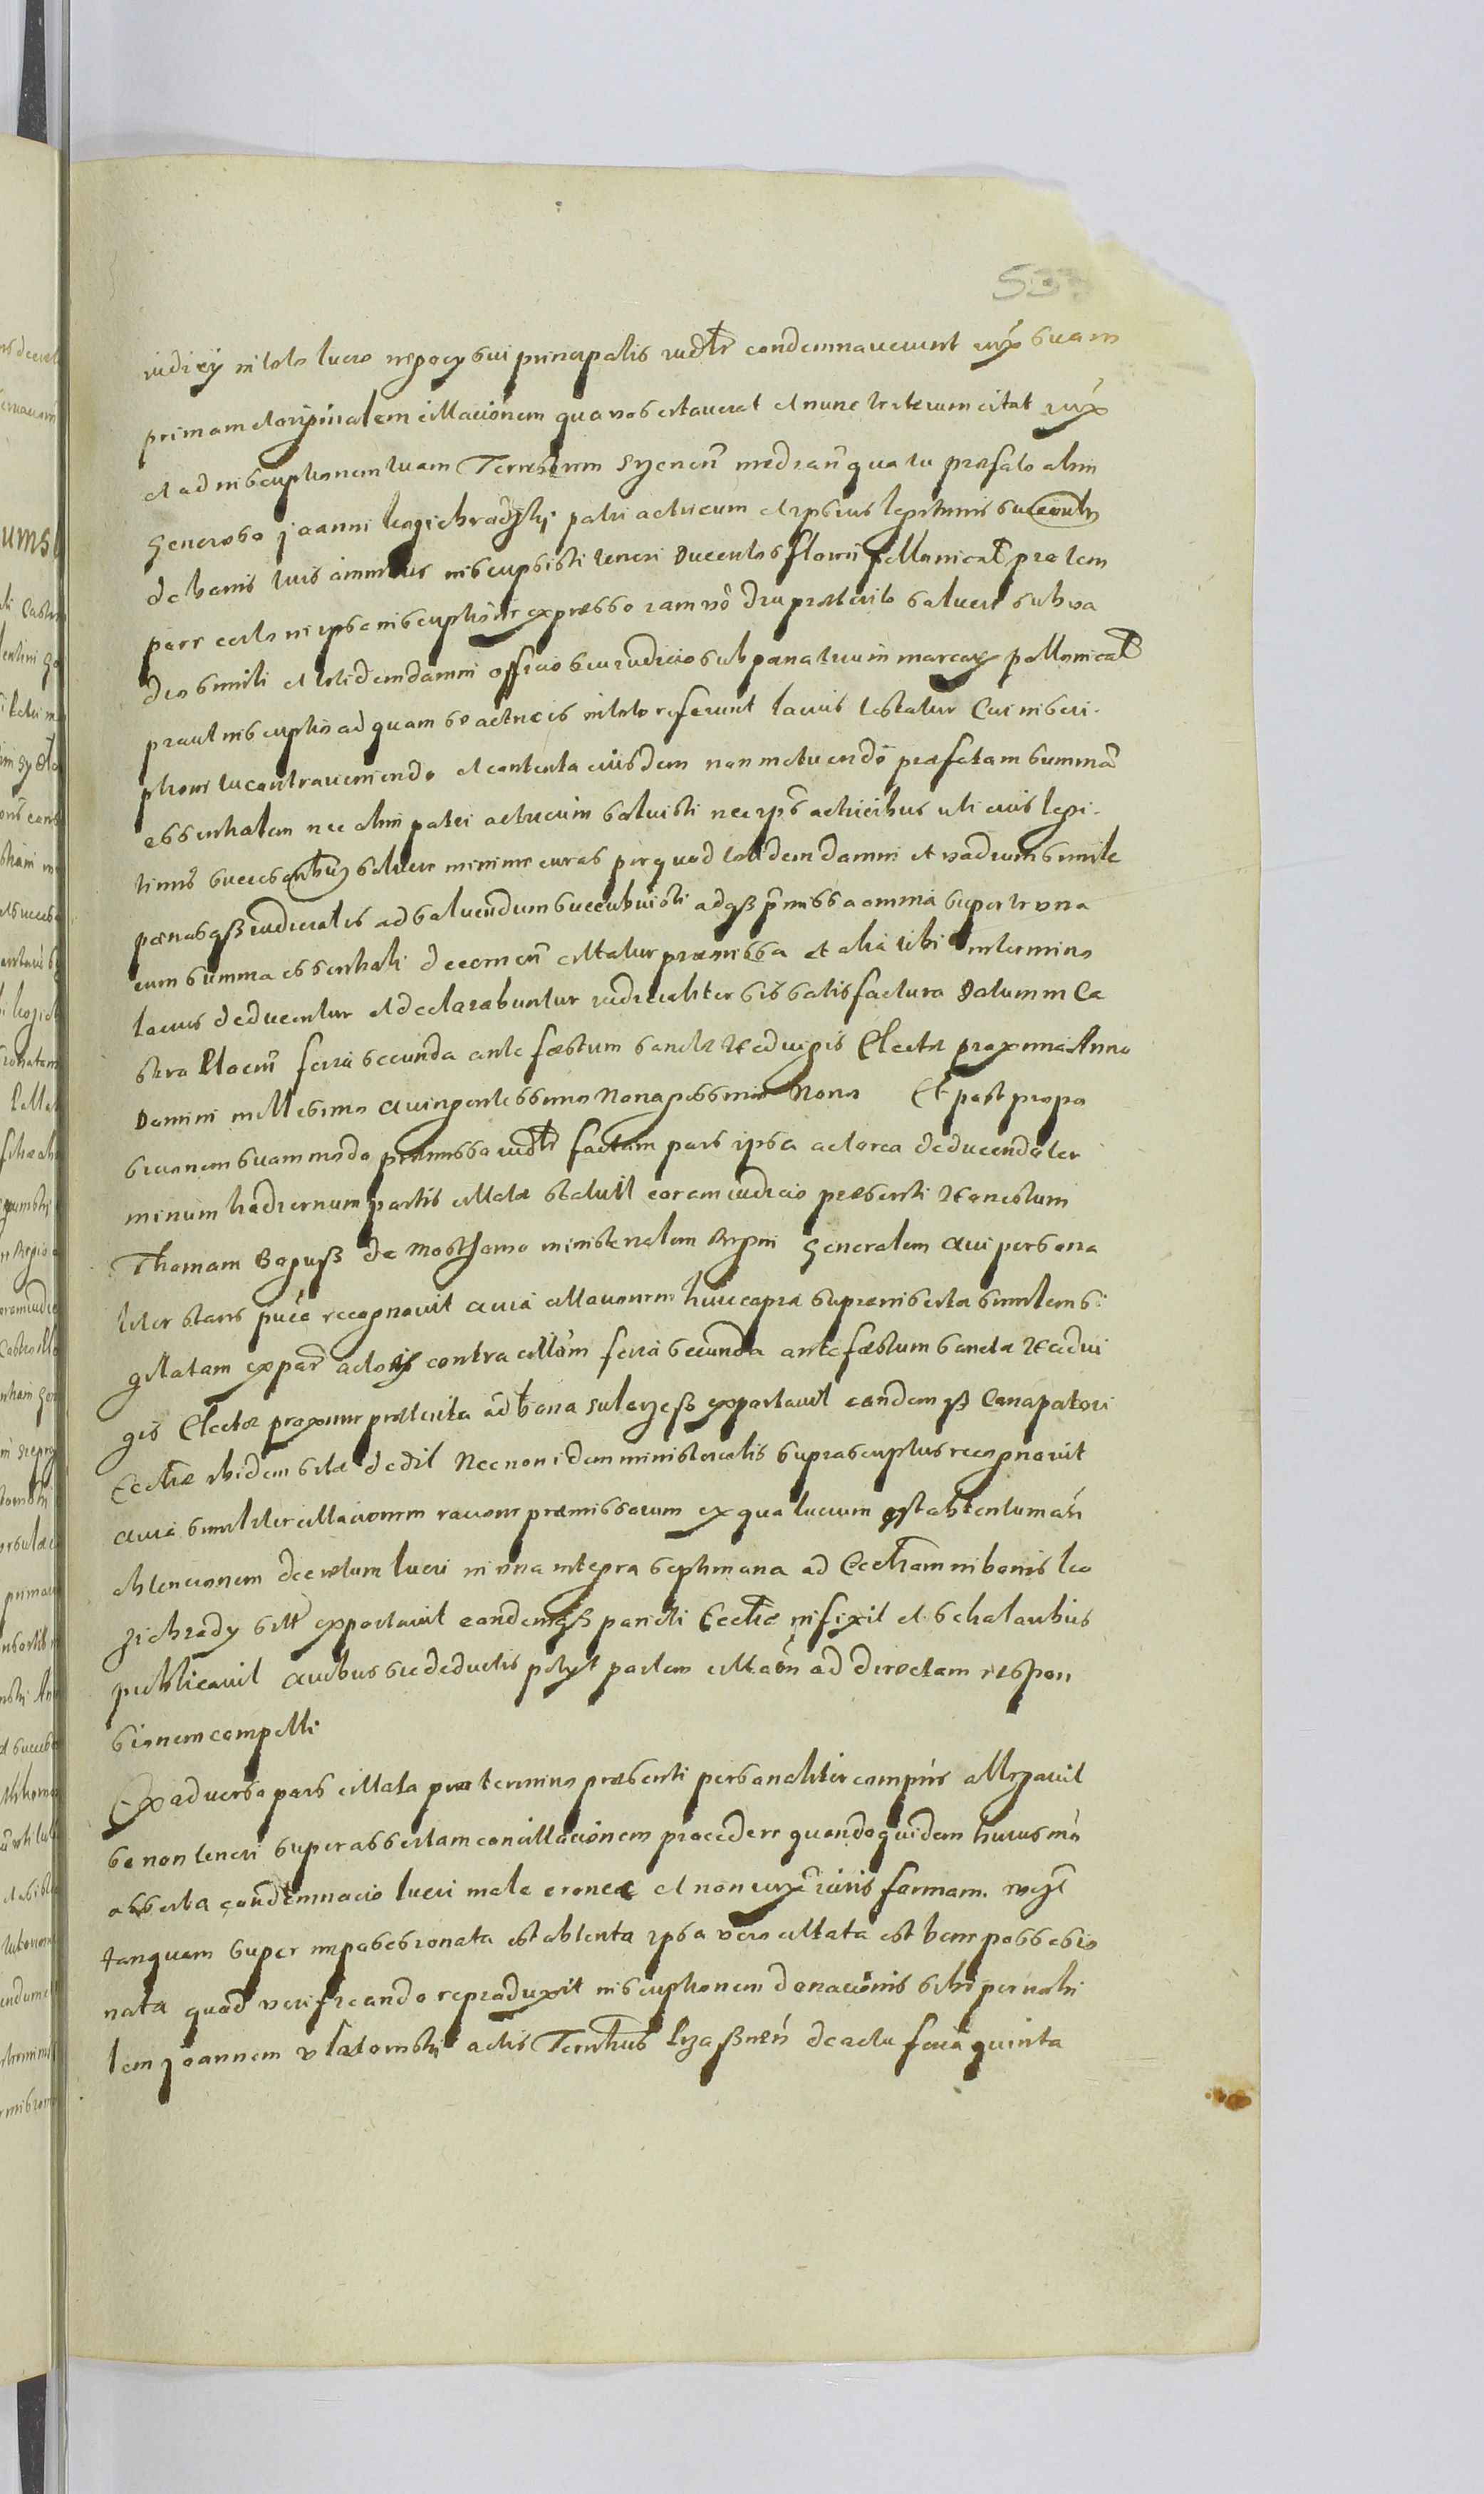 533
iudicÿ in toto lucro negocÿ sui principalis iudtr condemnauerunt iuxa suam
primam et originalem cittacionem qua vos citauerat et nunc te iterum citat iuxa
et ad inscriptionem tuam Terrestrem mediañ qua tu præfato olim
Generoso Joanni patri actricum et ipsius legitimis succeoribus
de bonis tuis omnibus inscripsisti teneri Ducentos florñ pollonical pro tem
pore certo in ipsa inscriptione expresso iam vô diu præterito soluere sub va
dio simili et totidem damni officio seu iudicio sub pœna trium marcar pollonical
prout inscriptio ad quam se actrices in toto referunt lacius testatur Cui inscri-
ptioni tu contraueniendo et contenta eiusdem non metuendô præfatam summã
essentialem nec olim patri actricum soluisti nec ipŝ actricibus uti eius legi-
timis succesoribus soluere minime curas per quod totidem damni et vadium simile
pœnasqß iudiciales ad soluendum succubuisti adqß pñmissa omnia super te una
cum summa essentiali decerneñ cittatur præmissa et alia tibi in termino
lacius deducentur et declarabuntur iudicialiter sis satisfactura Datum in Ca
stro Ploceñ feria secunda ante fæstum Sanctæ Heduigis Electæ proxima Anno
Domini millesimo Quingentessimo Nonagessimo Nono Et post propo
sicionem suam modo præmisso iudtr factam pars ipsa actorea deducendo ter
minum hodiernum partis cittatæ statuit coram iudicio præsenti Honestum
Thomam Boguß de ministerialem Regni Generalem Qui persona
liter stans puce recognouit Quia cittacionem huic copia supra inserta similem si-
gillatam ex pare actoris contra cittam feria secunda ante fæstum Sanctæ Hedui
gis Electæ proxime præterita ad bona exportauit eandemqß Canapatori
Eccliæ ibidem sitæ dedit Necnon idem ministerialis suprascriptus recognouit
Quia similiter cittacionem racione præmissorum ex qua lucrum est obtentum añ
obtencionem decretum lucri in una integra septimana ad Eccliam in bonis Ko
zichrady sitt exportauit eandemqß parieti Eccliæ infixit et scholaribus
publicauit Quibus sic deductis petyt partem cittam ad directam respon
sionem compelli
Ex aduerso pars cittata pro termino præsenti personaliter comparens allegauit
se non teneri super assertam concittacionem procedere quandoquidem huiusmõi
asserta condemnacio lucri male eronee et non iuxa iuris formam
tanquam super inpossesionata est obtenta ipsa vero cittata est bene possesio
nata quod verificando reproduxit inscriptionem donacionis sibi per nobi
lem Joannem actis Terrbus de actu feria quinta